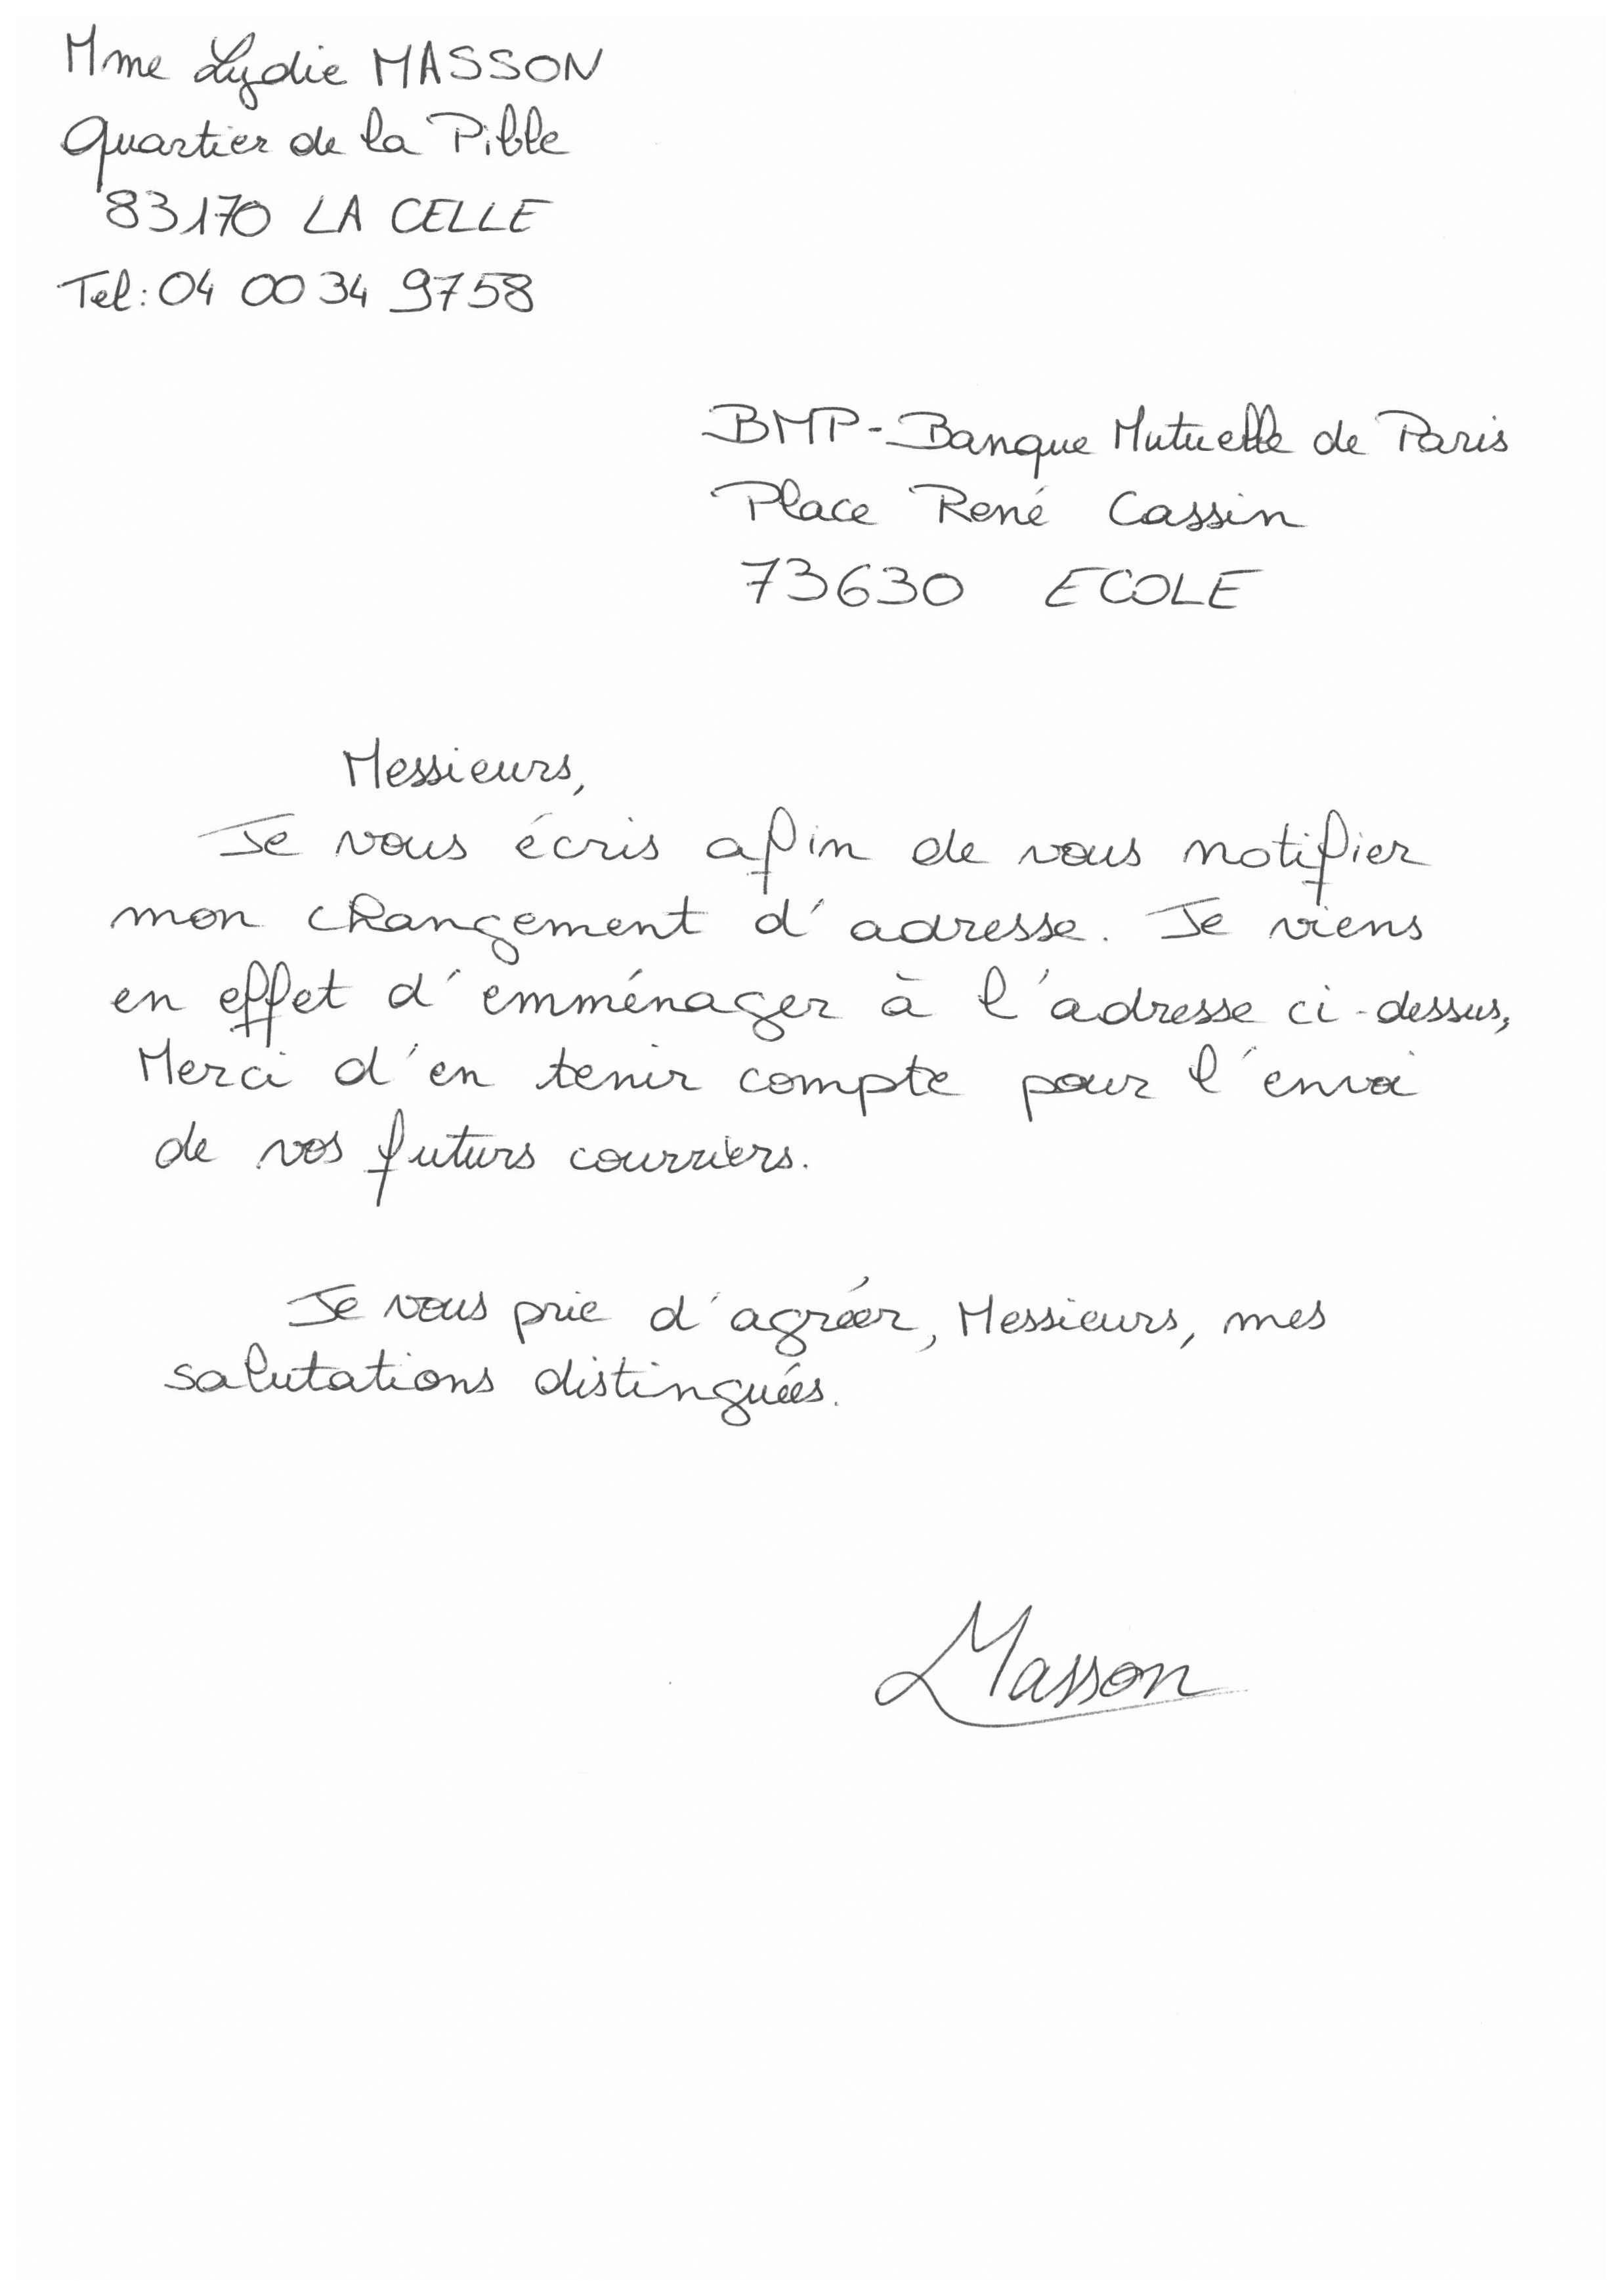 Mme Lydie MASSON
Quartier de la Pible
83170 LA CELLE
Tel: 04 00 34 9758
BMP - Banque Mutuelle de Paris
Place René Cassin
73630 ECOLE
Messieurs,
Je vous écris afin de vous notifier
mon changement d'adresse. Je viens
en effet d'emménager à l'adresse ci-dessus,
Merci d'en tenir compte pour l'envoi
de vos futurs courriers.
Je vous prie d'agréer, Messieurs, mes
salutations distinguées.
Masson